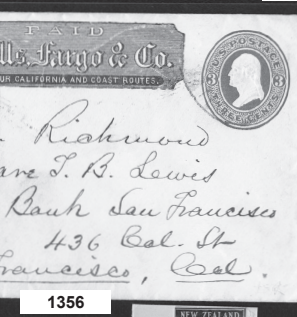 PAID
lls, Fargo & Co.
UR CALIFORNIA AND COAST ROUTES.
U.S. POSTAGE
3 3
THREE CENTS
Richmond
are T. B. Lewis
Bank San Francisco
436 Cal. St
Francisco, Cal.
1356
NEW ZEALAND